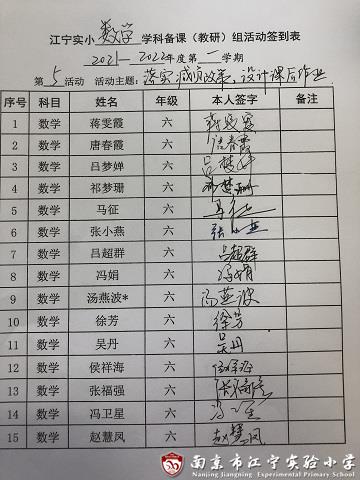 江宁实小 数学 学科备课（教研）组活动签到表
2021—2022年度第一学期
第 5 活动 活动主题：落实减负政策，设计课后作业
序号 科目 姓名 年级 本人签字 备注
1 数学 蒋雯霞 六 蒋雯霞
2 数学 唐春霞 六 唐春霞
3 数学 吕梦婵 六 吕梦婵
4 数学 祁梦珊 六 祁梦珊
5 数学 马征 六 马征
6 数学 张小燕 六 张小燕
7 数学 吕超群 六 吕超群
8 数学 冯娟 六 冯娟
9 数学 汤燕波* 六 汤燕波
10 数学 徐芳 六 徐芳
11 数学 吴丹 六 吴丹
12 数学 侯祥海 六
13 数学 张福强 六 张福强
14 数学 冯卫星 六
15 数学 赵慧凤 六 赵慧凤
南京市江宁实验小学
Nanjing Jiangning Experimental Primary School